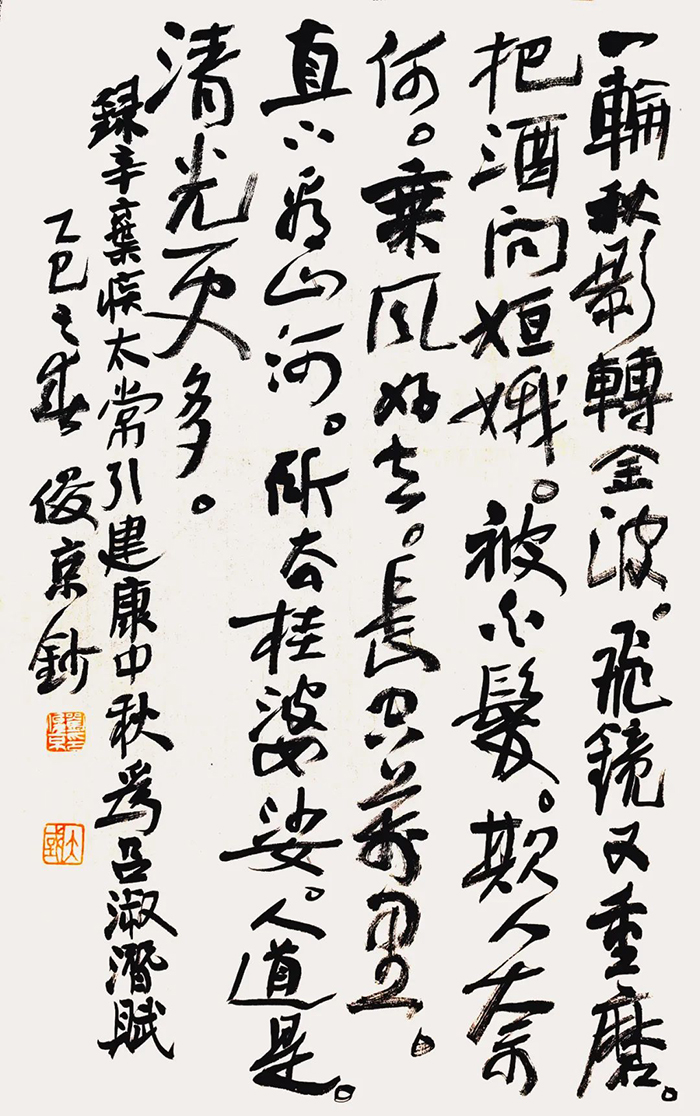 一輪秋影轉金波。飛鏡又重磨。
把酒问姮娥。被白髮。欺人奈
何。乘风好去。長空萬里。
直下看山河。斫去桂婆娑。人道是。
清光更多。
録辛棄疾太常引建康中秋為呂淑潛賦
乙巳之春 俊京鈔